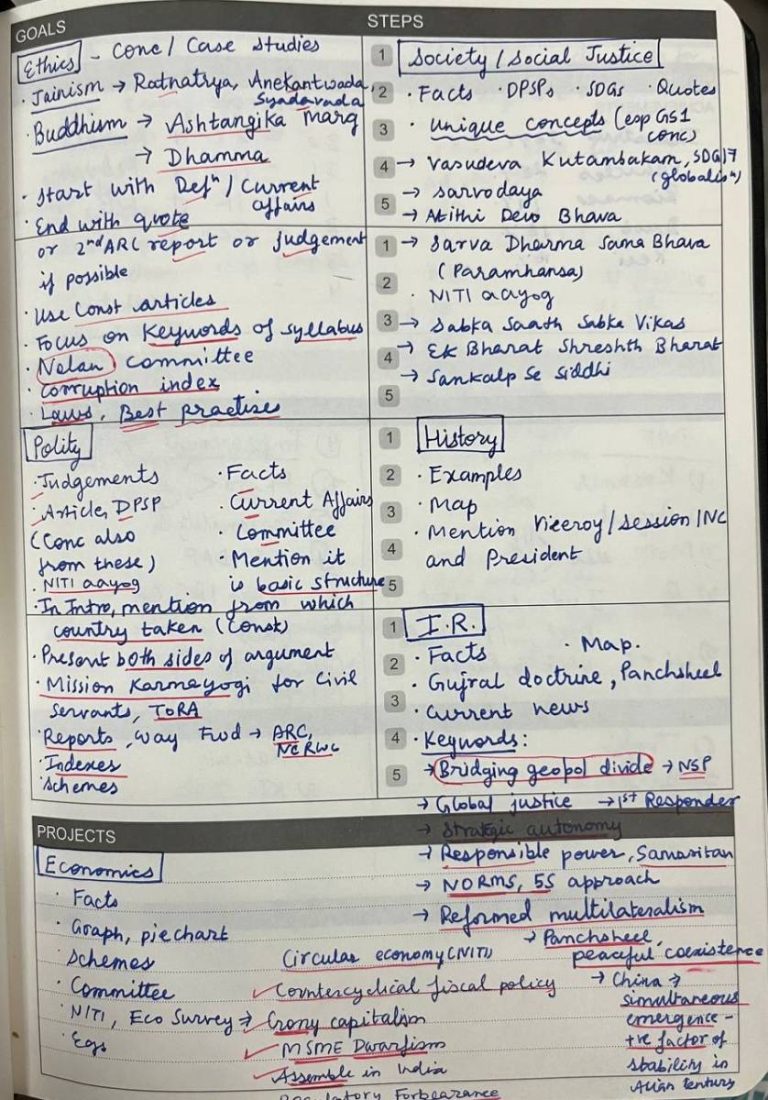 GOALS
Ethics - Conc / Case Studies
· Jainism → Ratnatrya, Anekantwada,
Syadavada
· Buddhism → Ashtangika Marg
→ Dhamma
· Start with Defⁿ / Current
affairs
· End with quote
or 2ⁿᵈ ARC report or judgement
if possible
· Use Const articles
· Focus on Keywords of syllabus
· Nolan committee
· Corruption index
· Laws, Best practises
STEPS
1 Society / Social Justice
2 · Facts · DPSPs · SDGs · Quotes
3 · Unique concepts (esp GS1
conc)
4 → Vasudeva Kutambakam, SDG17
(globalisⁿ)
5 → Sarvodaya
→ Atithi Devo Bhava
1 → Sarva Dharma Sama Bhava
(Paramhansa)
2 · NITI aayog
3 → Sabka Saath Sabka Vikas
4 → EK Bharat Shreshth Bharat
→ Sankalp Se Siddhi
5
Polity
· Judgements
· Article, DPSP
(Conc also
from these)
· NITI aayog
· Facts
· Current Affairs
· Committee
· Mention it
is basic structure
· In Intro, mention from which
country taken (Const)
· Present both sides of argument
· Mission Karmayogi for Civil
Servants, ToRA
· Reports, Way Fwd → ARC,
NCRWC
· Indexes
· Schemes
1 History
2 · Examples
3 · Map
· Mention Viceroy / Session INC
4 and President
5
1 I.R.
2 · Facts · Map.
· Gujral doctrine, Panchsheel
3 · Current news
4 · Keywords:
5 → Bridging geopol divide → NSP
→ Global justice → 1st Responder
→ Strategic autonomy
→ Responsible power, Samaritan
→ NORMS, 5S approach
→ Reformed multilateralism
→ Panchsheel,
peaceful coexistence
→ China →
simultaneous
emergence -
+ve factor of
stability in
Asian Century
PROJECTS
Economics
· Facts
· Graph, piechart
· Schemes
· Committee
· NITI, Eco Survey →
· Egs
Circular economy (NITI)
Countercyclical fiscal policy
Crony capitalism
MSME Dwarfism
Assemble in India
Forbearance